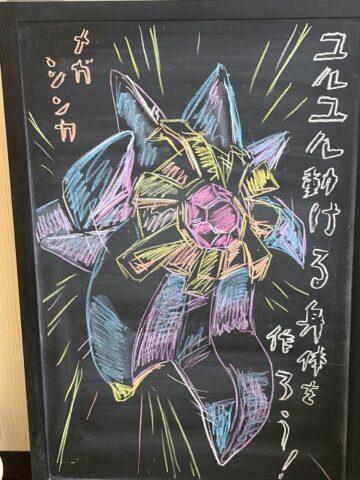 ユルユル動ける身体を
作ろう！
メガ
シンカ